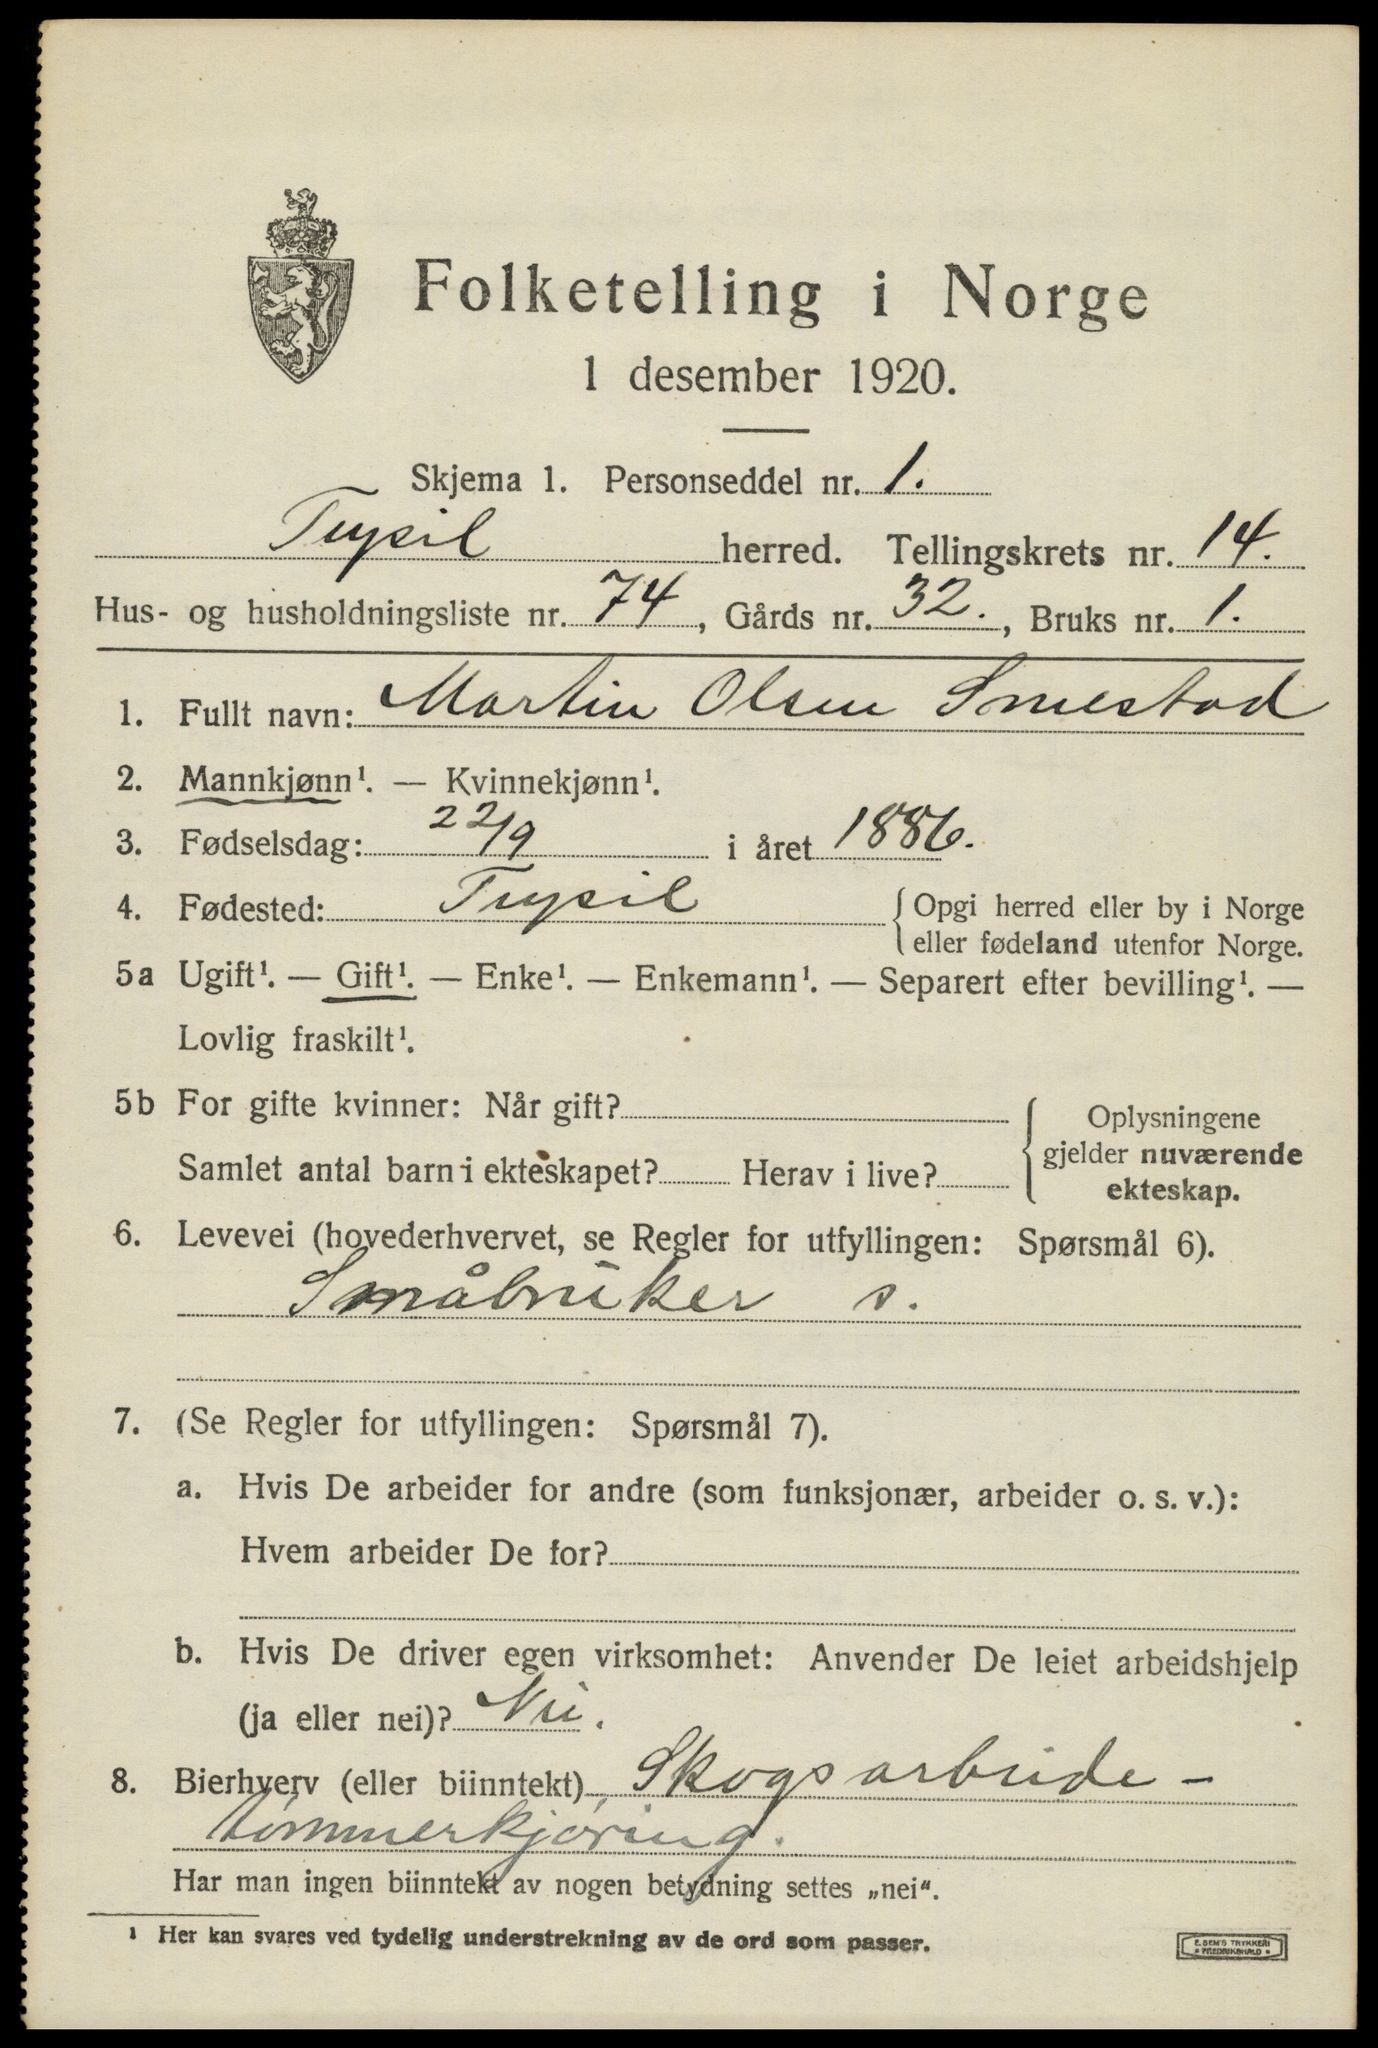 Folketelling i Norge
1 desember 1920.
Skjema 1. Personseddel nr. 1.
Trysil herred. Tellingskrets nr. 14.
Hus- og husholdningsliste nr. 74, Gårds nr. 32., Bruks nr. 1.
1. Fullt navn: Martin Olsen Smestad
2. Mannkjønn¹. — Kvinnekjønn¹.
3. Fødselsdag: 22/9 i året 1886.
4. Fødested: Trysil {Opgi herred eller by i Norge
eller fødeland utenfor Norge.
5a Ugift¹. — Gift¹. — Enke¹. — Enkemann¹. — Separert efter bevilling¹. —
Lovlig fraskilt¹.
5b For gifte kvinner: Når gift?
Samlet antal barn i ekteskapet? Herav i live?
Oplysningene
gjelder nuværende
ekteskap.
6. Levevei (hovederhvervet, se Regler for utfyllingen: Spørsmål 6).
Småbruker s.
7. (Se Regler for utfyllingen: Spørsmål 7).
a. Hvis De arbeider for andre (som funksjonær, arbeider o. s. v.):
Hvem arbeider De for?
b. Hvis De driver egen virksomhet: Anvender De leiet arbeidshjelp
(ja eller nei)? Nei.
8. Bierhverv (eller biinntekt) Skogsarbeide -
tømmerkjøring.
Har man ingen biinntekt av nogen betydning settes „nei“.
¹ Her kan svares ved tydelig understrekning av de ord som passer.
E. SEM'S TRYKKERI
* FREDRIKSHALD *